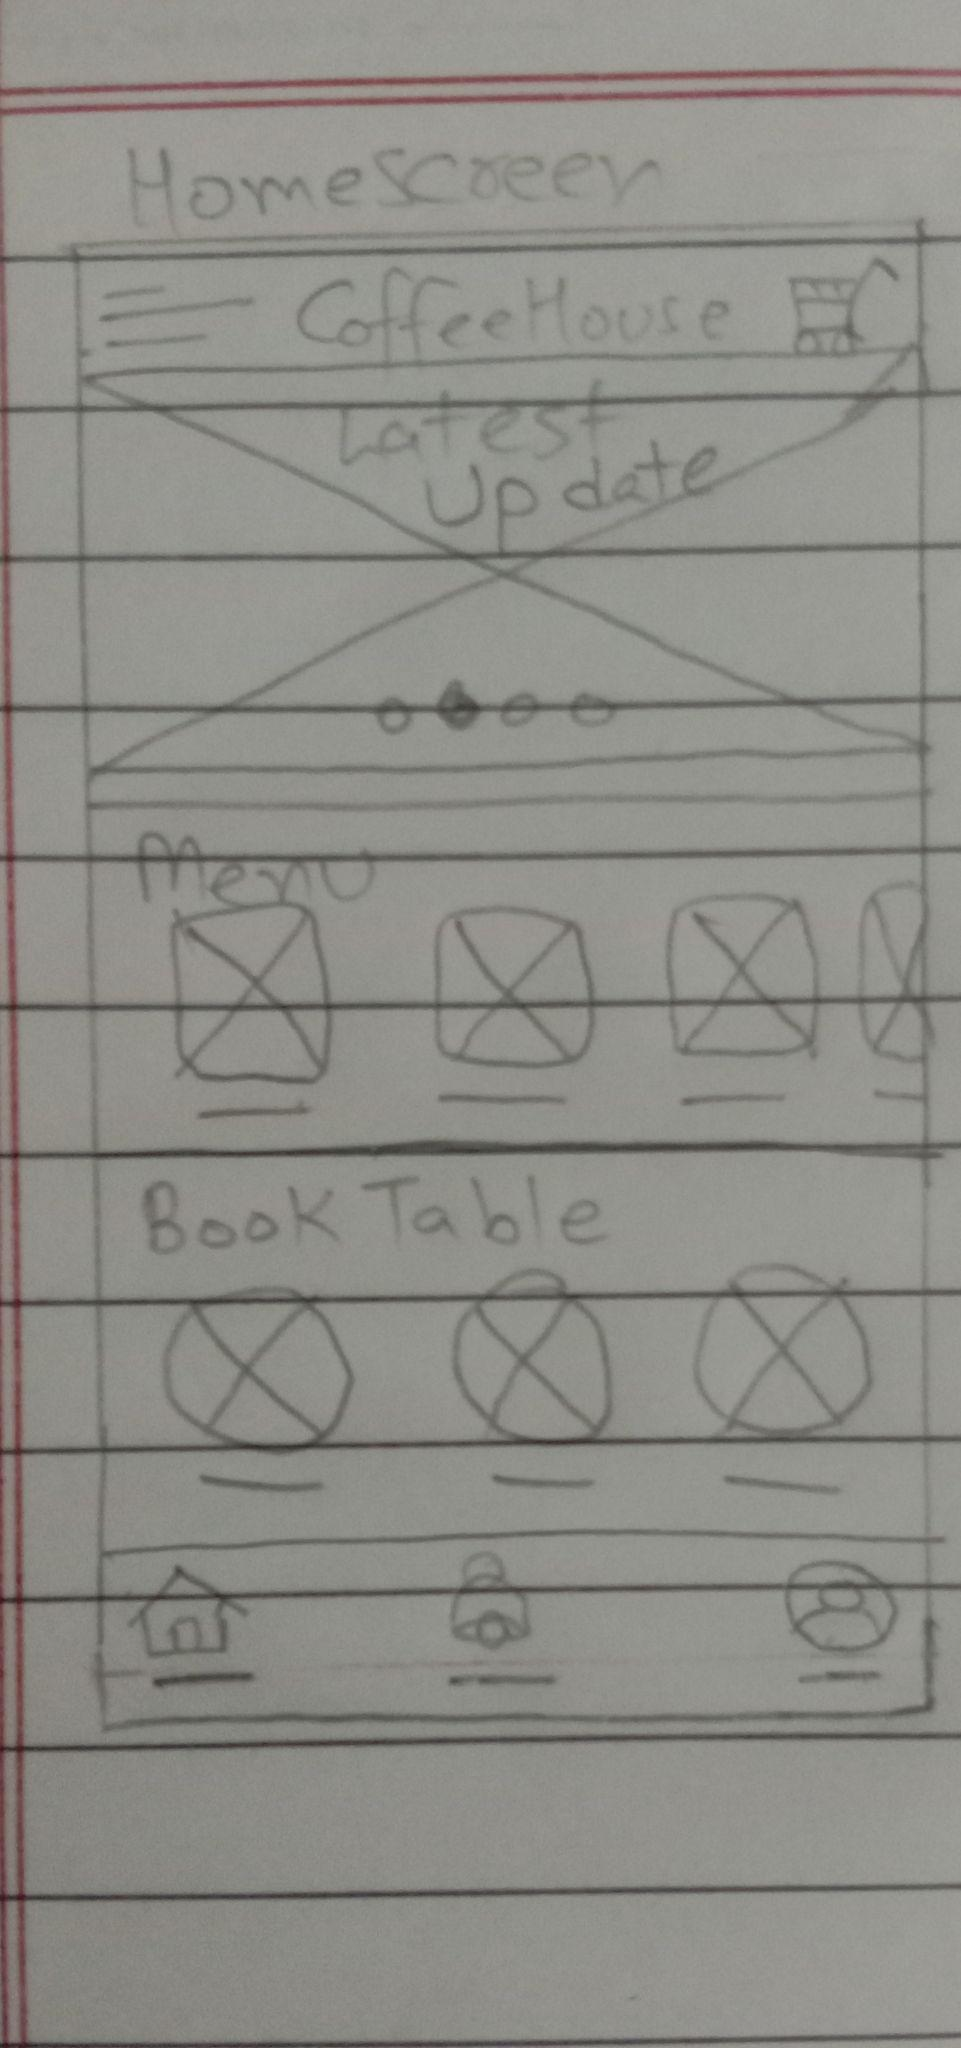 Homescreen
CoffeeHouse
Latest
Update
Menu
Book Table